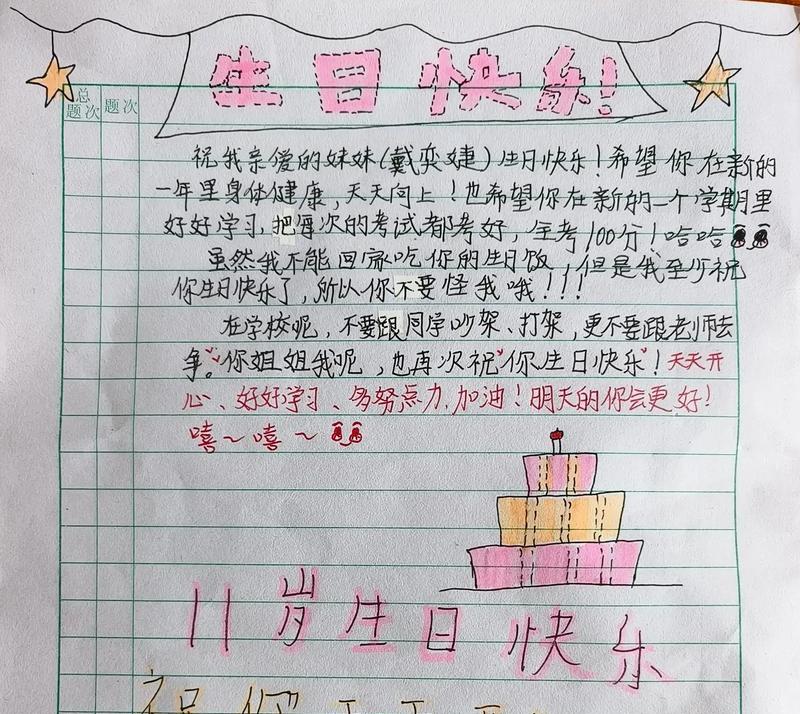 生日快乐!
总题次 题次
祝我亲爱的妹妹(戴奕婕)生日快乐!希望你在新的
一年里身体健康,天天向上!也希望你在新的一个学期里
好好学习,把每次的考试都考好,全考100分!哈哈
虽然我不能回家吃你的生日饭,但是我至少祝
你生日快乐了,所以你不要怪我哦!!!
在学校呢,不要跟同学吵架、打架,更不要跟老师去
争。你姐姐我呢,也再次祝“你生日快乐”!天天开
心、好好学习、多努点力,加油!明天的你会更好!
嘻~嘻~
11岁生日快乐
祝你天天